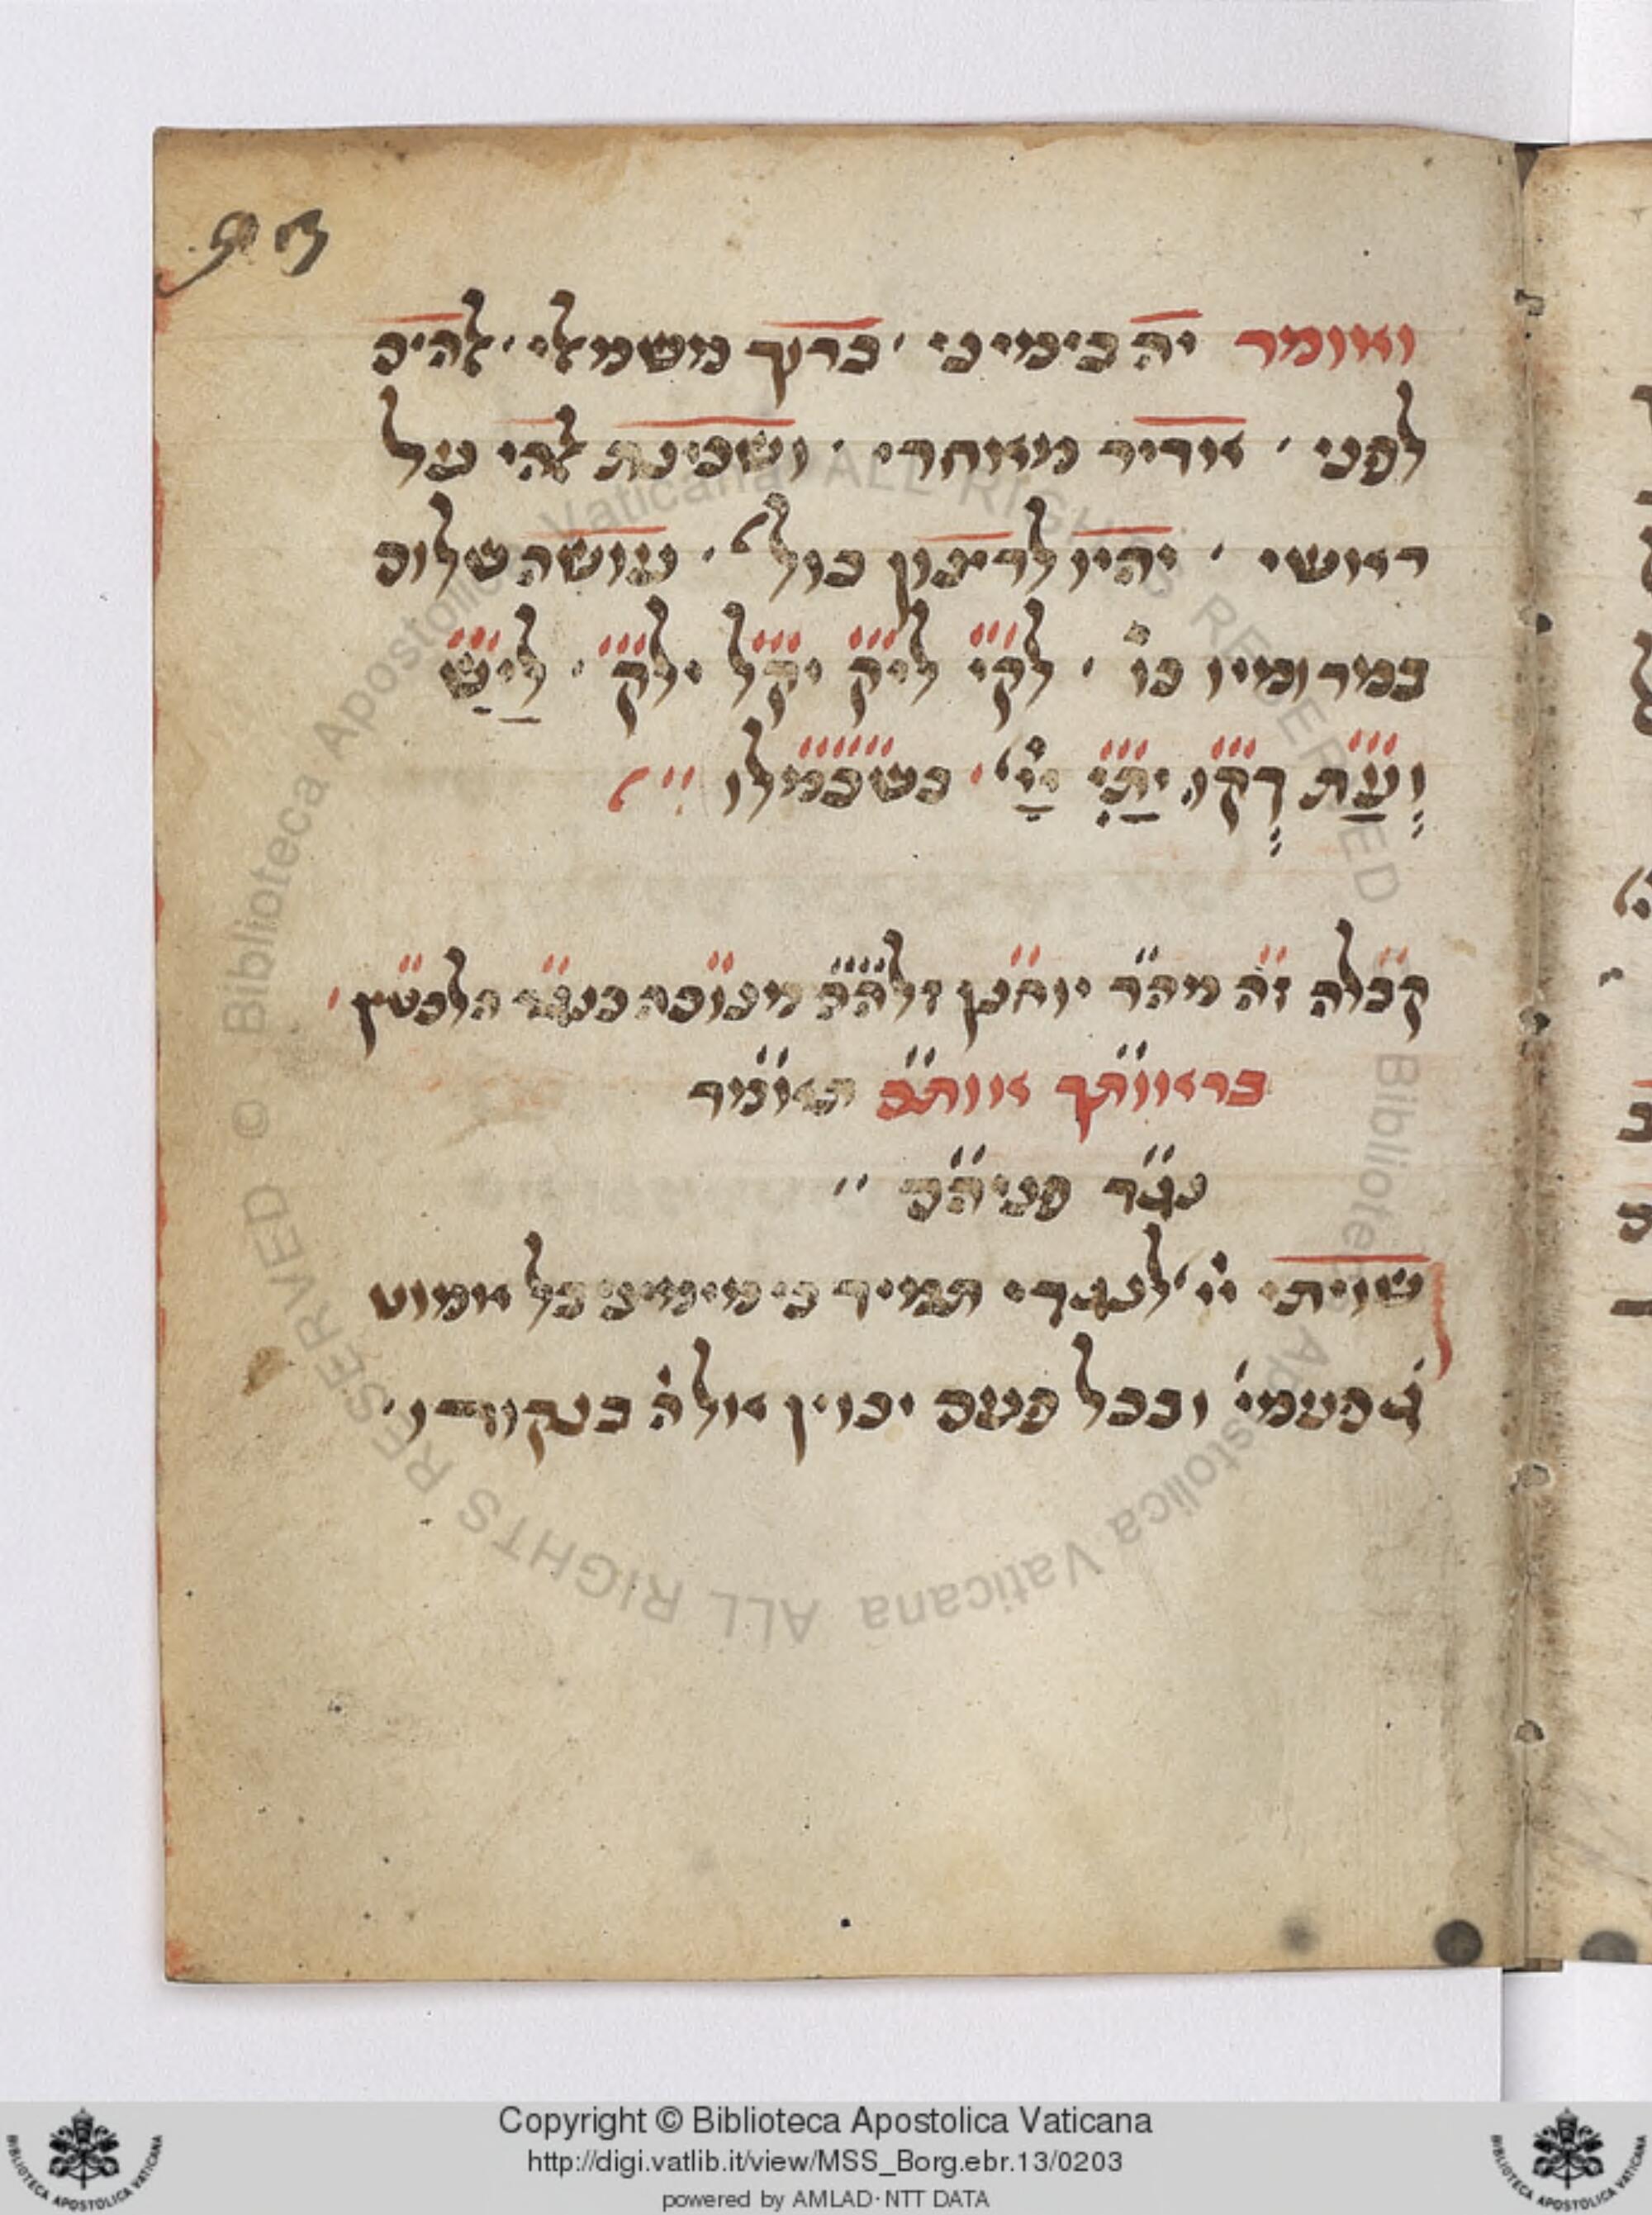 93
ואומר יה בימיני ׳ ברוך משמאלי ׳ אלהים
לפני ׳ אדיר מאחרי ׳ ושכינת אלהי על
ראשי ׳ יהיו לרצון כול׳ ׳ עושה שלום
במרומיו כו׳ ׳ לקי ליק יקל ילק ׳ לַיַש
וְעַת דְקוּ יַתִי יָי׳ ׳ בשכמלו
קבלה זה מהר יוחנן דלההה מנוסה כנגד הלסטין ׳
בראותך אותם תאומר
נגד פניהם
שויתי יי׳ לנגדי תמיד כי מימיני בל אמוט
ג׳ פעמי׳ ובכל פעם יכוין אלה בנקודו׳
© Biblioteca Apostolica Vaticana ALL RIGHTS RESERVED
Biblioteca Apostolica Vaticana ALL RIGHTS RESERVED
Copyright © Biblioteca Apostolica Vaticana
http://digi.vatlib.it/view/MSS_Borg.ebr.13/0203
powered by AMLAD·NTT DATA
BIBLIOTECA APOSTOLICA VATICANA
BIBLIOTECA APOSTOLICA VATICANA